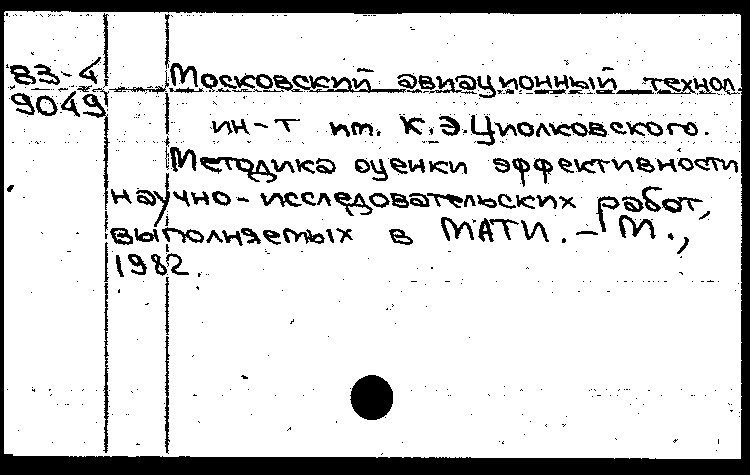 83-4
9049
Московский авиационный технол.
ин-т им. К.Э.Циолковского.
Методика оценки эффективности
научно-исследовательских работ,
выполняемых в МАТИ. - М.,
1982.